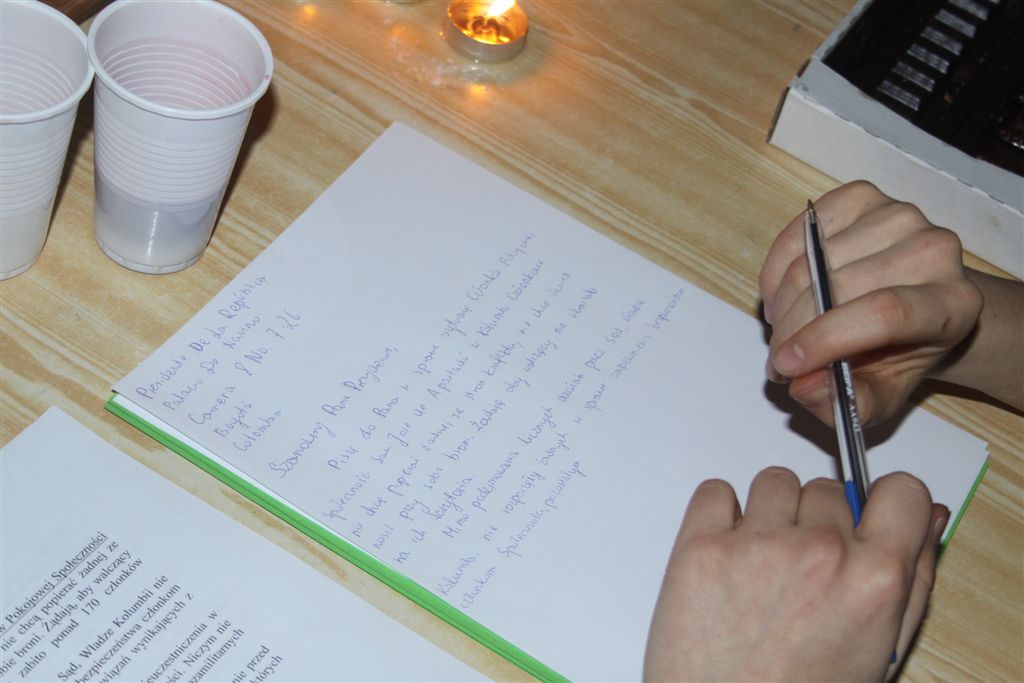 Presidente De La República
Palacio De Narino
Carrera 8 No. 7.26
Bogotá
Colombia
Szanowny Panie Prezydencie,
Piszę do Pana w sprawie sytuacji Członków Pokojowej
Społeczności San Jose de Apartadó w Kolumbii. Członkowie
nie chcą popierać żadnej ze stron konfliktu, nie chcą również
nosić przy sobie broni. Żądają aby walczący nie wkraczali
na ich terytoria.
Mimo podejmowania licznych działań przez Sąd, władze
Kolumbii nie rozpoczęły żadnych w sprawie zapewnienia bezpieczeństwa
członkom Społeczności pokojowej
w Pokojowej Społeczności
nie chcą popierać żadnej ze
obie broni. Żądają, aby walczący
zabito ponad 170 członków
Sąd, Władze Kolumbii nie
bezpieczeństwa członkom
wiązań wynikających z
ieuczestniczenia w
ści. Niczym nie
amilitarnych
nie przed
których